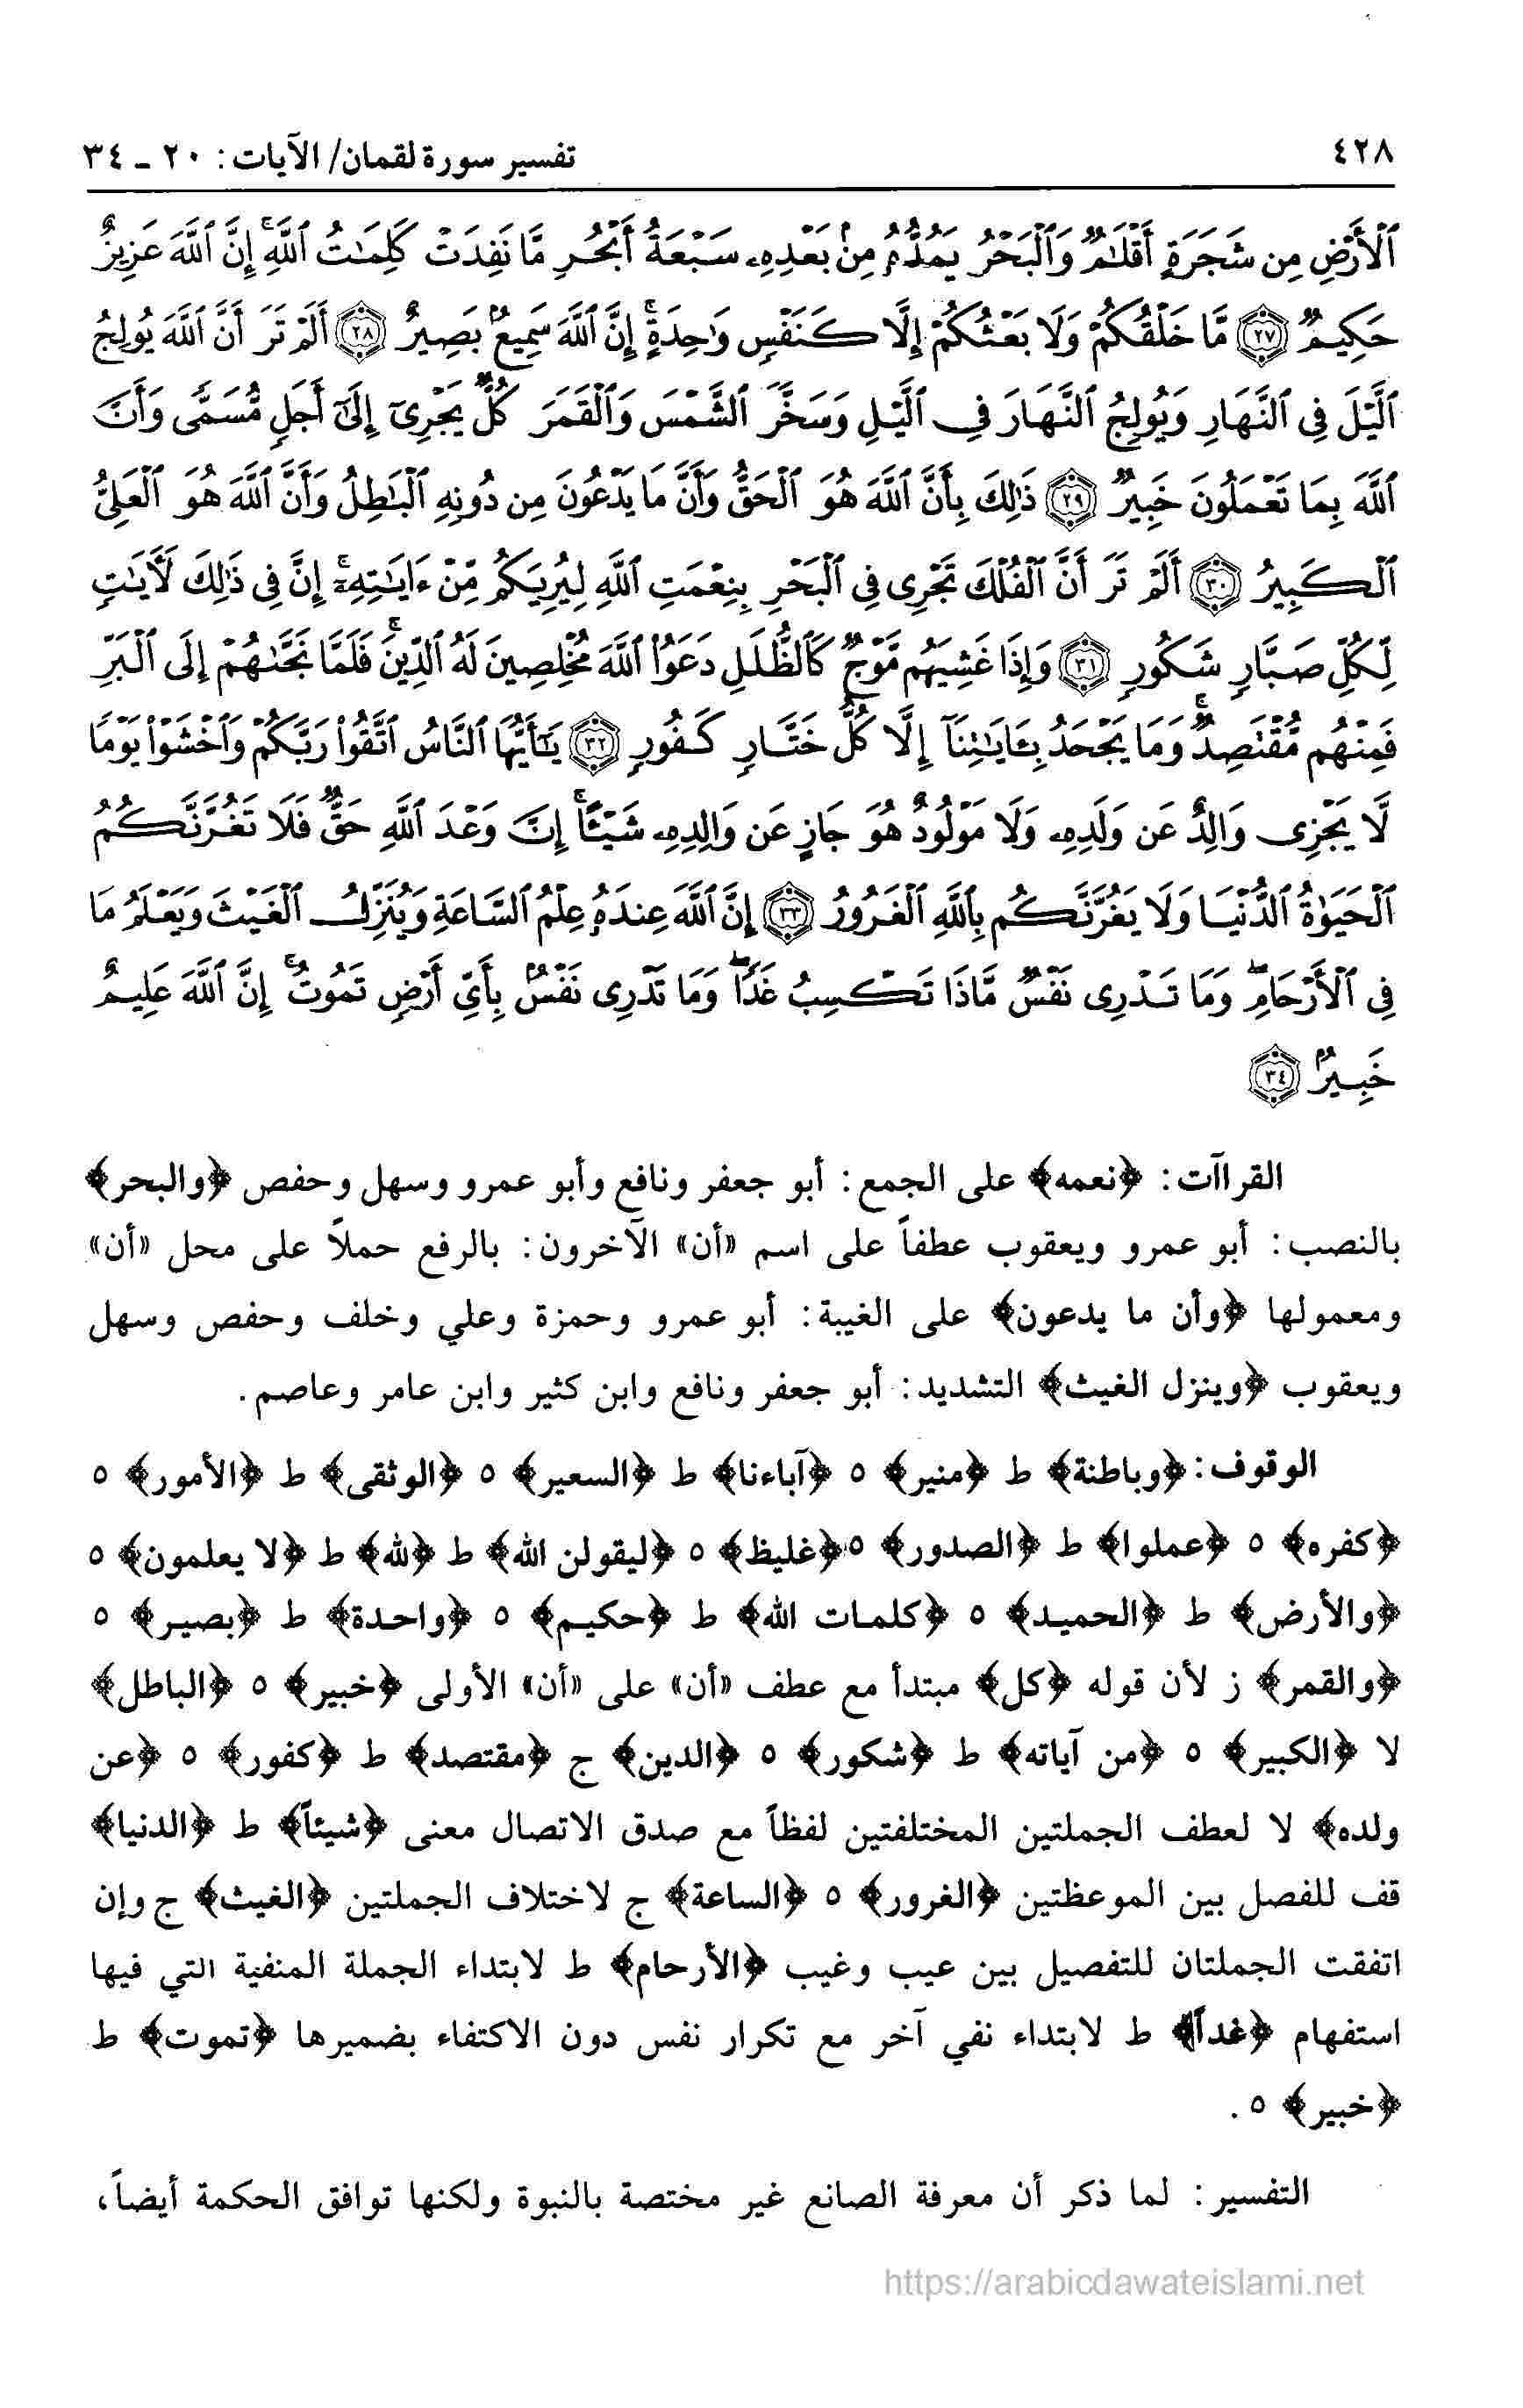 ٤٢٨
تفسير سورة لقمان/ الآيات: ٢٠ ـ ٣٤
ٱلْأَرْضِ مِن شَجَرَةٍ أَقْلَٰمٌ وَٱلْبَحْرُ يَمُدُّهُۥ مِنۢ بَعْدِهِۦ سَبْعَةُ أَبْحُرٍ مَّا نَفِدَتْ كَلِمَٰتُ ٱللَّهِ ۚ إِنَّ ٱللَّهَ عَزِيزٌ
حَكِيمٌ ﴿٢٧﴾ مَّا خَلْقُكُمْ وَلَا بَعْثُكُمْ إِلَّا كَنَفْسٍ وَٰحِدَةٍ ۗ إِنَّ ٱللَّهَ سَمِيعٌۢ بَصِيرٌ ﴿٢٨﴾ أَلَمْ تَرَ أَنَّ ٱللَّهَ يُولِجُ
ٱلَّيْلَ فِى ٱلنَّهَارِ وَيُولِجُ ٱلنَّهَارَ فِى ٱلَّيْلِ وَسَخَّرَ ٱلشَّمْسَ وَٱلْقَمَرَ كُلٌّ يَجْرِىٓ إِلَىٰٓ أَجَلٍ مُّسَمًّى وَأَنَّ
ٱللَّهَ بِمَا تَعْمَلُونَ خَبِيرٌ ﴿٢٩﴾ ذَٰلِكَ بِأَنَّ ٱللَّهَ هُوَ ٱلْحَقُّ وَأَنَّ مَا يَدْعُونَ مِن دُونِهِ ٱلْبَٰطِلُ وَأَنَّ ٱللَّهَ هُوَ ٱلْعَلِىُّ
ٱلْكَبِيرُ ﴿٣٠﴾ أَلَمْ تَرَ أَنَّ ٱلْفُلْكَ تَجْرِى فِى ٱلْبَحْرِ بِنِعْمَتِ ٱللَّهِ لِيُرِيَكُم مِّنْ ءَايَٰتِهِۦٓ ۚ إِنَّ فِى ذَٰلِكَ لَءَايَٰتٍ
لِّكُلِّ صَبَّارٍ شَكُورٍ ﴿٣١﴾ وَإِذَا غَشِيَهُم مَّوْجٌ كَٱلظُّلَلِ دَعَوُا۟ ٱللَّهَ مُخْلِصِينَ لَهُ ٱلدِّينَ ۚ فَلَمَّا نَجَّىٰهُمْ إِلَى ٱلْبَرِّ
فَمِنْهُم مُّقْتَصِدٌ ۚ وَمَا يَجْحَدُ بِـَٔايَٰتِنَآ إِلَّا كُلُّ خَتَّارٍ كَفُورٍ ﴿٣٢﴾ يَٰٓأَيُّهَا ٱلنَّاسُ ٱتَّقُوا۟ رَبَّكُمْ وَٱخْشَوْا۟ يَوْمًا
لَّا يَجْزِى وَالِدٌ عَن وَلَدِهِۦ وَلَا مَوْلُودٌ هُوَ جَازٍ عَن وَالِدِهِۦ شَيْـًٔا ۚ إِنَّ وَعْدَ ٱللَّهِ حَقٌّ فَلَا تَغُرَّنَّكُمُ
ٱلْحَيَوٰةُ ٱلدُّنْيَا وَلَا يَغُرَّنَّكُم بِٱللَّهِ ٱلْغَرُورُ ﴿٣٣﴾ إِنَّ ٱللَّهَ عِندَهُۥ عِلْمُ ٱلسَّاعَةِ وَيُنَزِّلُ ٱلْغَيْثَ وَيَعْلَمُ مَا
فِى ٱلْأَرْحَامِ ۖ وَمَا تَدْرِى نَفْسٌ مَّاذَا تَكْسِبُ غَدًا ۖ وَمَا تَدْرِى نَفْسٌۢ بِأَىِّ أَرْضٍ تَمُوتُ ۚ إِنَّ ٱللَّهَ عَلِيمٌ
خَبِيرٌۢ ﴿٣٤﴾
القراآت: ﴿نعمه﴾ على الجمع: أبو جعفر ونافع وأبو عمرو وسهل وحفص ﴿والبحر﴾
بالنصب: أبو عمرو ويعقوب عطفاً على اسم «أن» الآخرون: بالرفع حملاً على محل «أن»
ومعمولها ﴿وأن ما يدعون﴾ على الغيبة: أبو عمرو وحمزة وعلي وخلف وحفص وسهل
ويعقوب ﴿وينزل الغيث﴾ التشديد: أبو جعفر ونافع وابن كثير وابن عامر وعاصم.
الوقوف: ﴿وباطنة﴾ ط ﴿منير﴾ ٥ ﴿آباءنا﴾ ط ﴿السعير﴾ ٥ ﴿الوثقى﴾ ط ﴿الأمور﴾ ٥
﴿كفره﴾ ٥ ﴿عملوا﴾ ط ﴿الصدور﴾ ٥ ﴿غليظ﴾ ٥ ﴿ليقولن الله﴾ ط ﴿لله﴾ ط ﴿لا يعلمون﴾ ٥
﴿والأرض﴾ ط ﴿الحميد﴾ ٥ ﴿كلمات الله﴾ ط ﴿حكيم﴾ ٥ ﴿واحدة﴾ ط ﴿بصير﴾ ٥
﴿والقمر﴾ ز لأن قوله ﴿كل﴾ مبتدأ مع عطف «أن» على «أن» الأولى ﴿خبير﴾ ٥ ﴿الباطل﴾
لا ﴿الكبير﴾ ٥ ﴿من آياته﴾ ط ﴿شكور﴾ ٥ ﴿الدين﴾ ج ﴿مقتصد﴾ ط ﴿كفور﴾ ٥ ﴿عن
ولده﴾ لا لعطف الجملتين المختلفتين لفظاً مع صدق الاتصال معنى ﴿شيئاً﴾ ط ﴿الدنيا﴾
قف للفصل بين الموعظتين ﴿الغرور﴾ ٥ ﴿الساعة﴾ ج لاختلاف الجملتين ﴿الغيث﴾ ج وإن
اتفقت الجملتان للتفصيل بين عيب وغيب ﴿الأرحام﴾ ط لابتداء الجملة المنفية التي فيها
استفهام ﴿غداً﴾ ط لابتداء نفي آخر مع تكرار نفس دون الاكتفاء بضميرها ﴿تموت﴾ ط
﴿خبير﴾ ٥ .
التفسير: لما ذكر أن معرفة الصانع غير مختصة بالنبوة ولكنها توافق الحكمة أيضاً،
https://arabicdawateislami.net